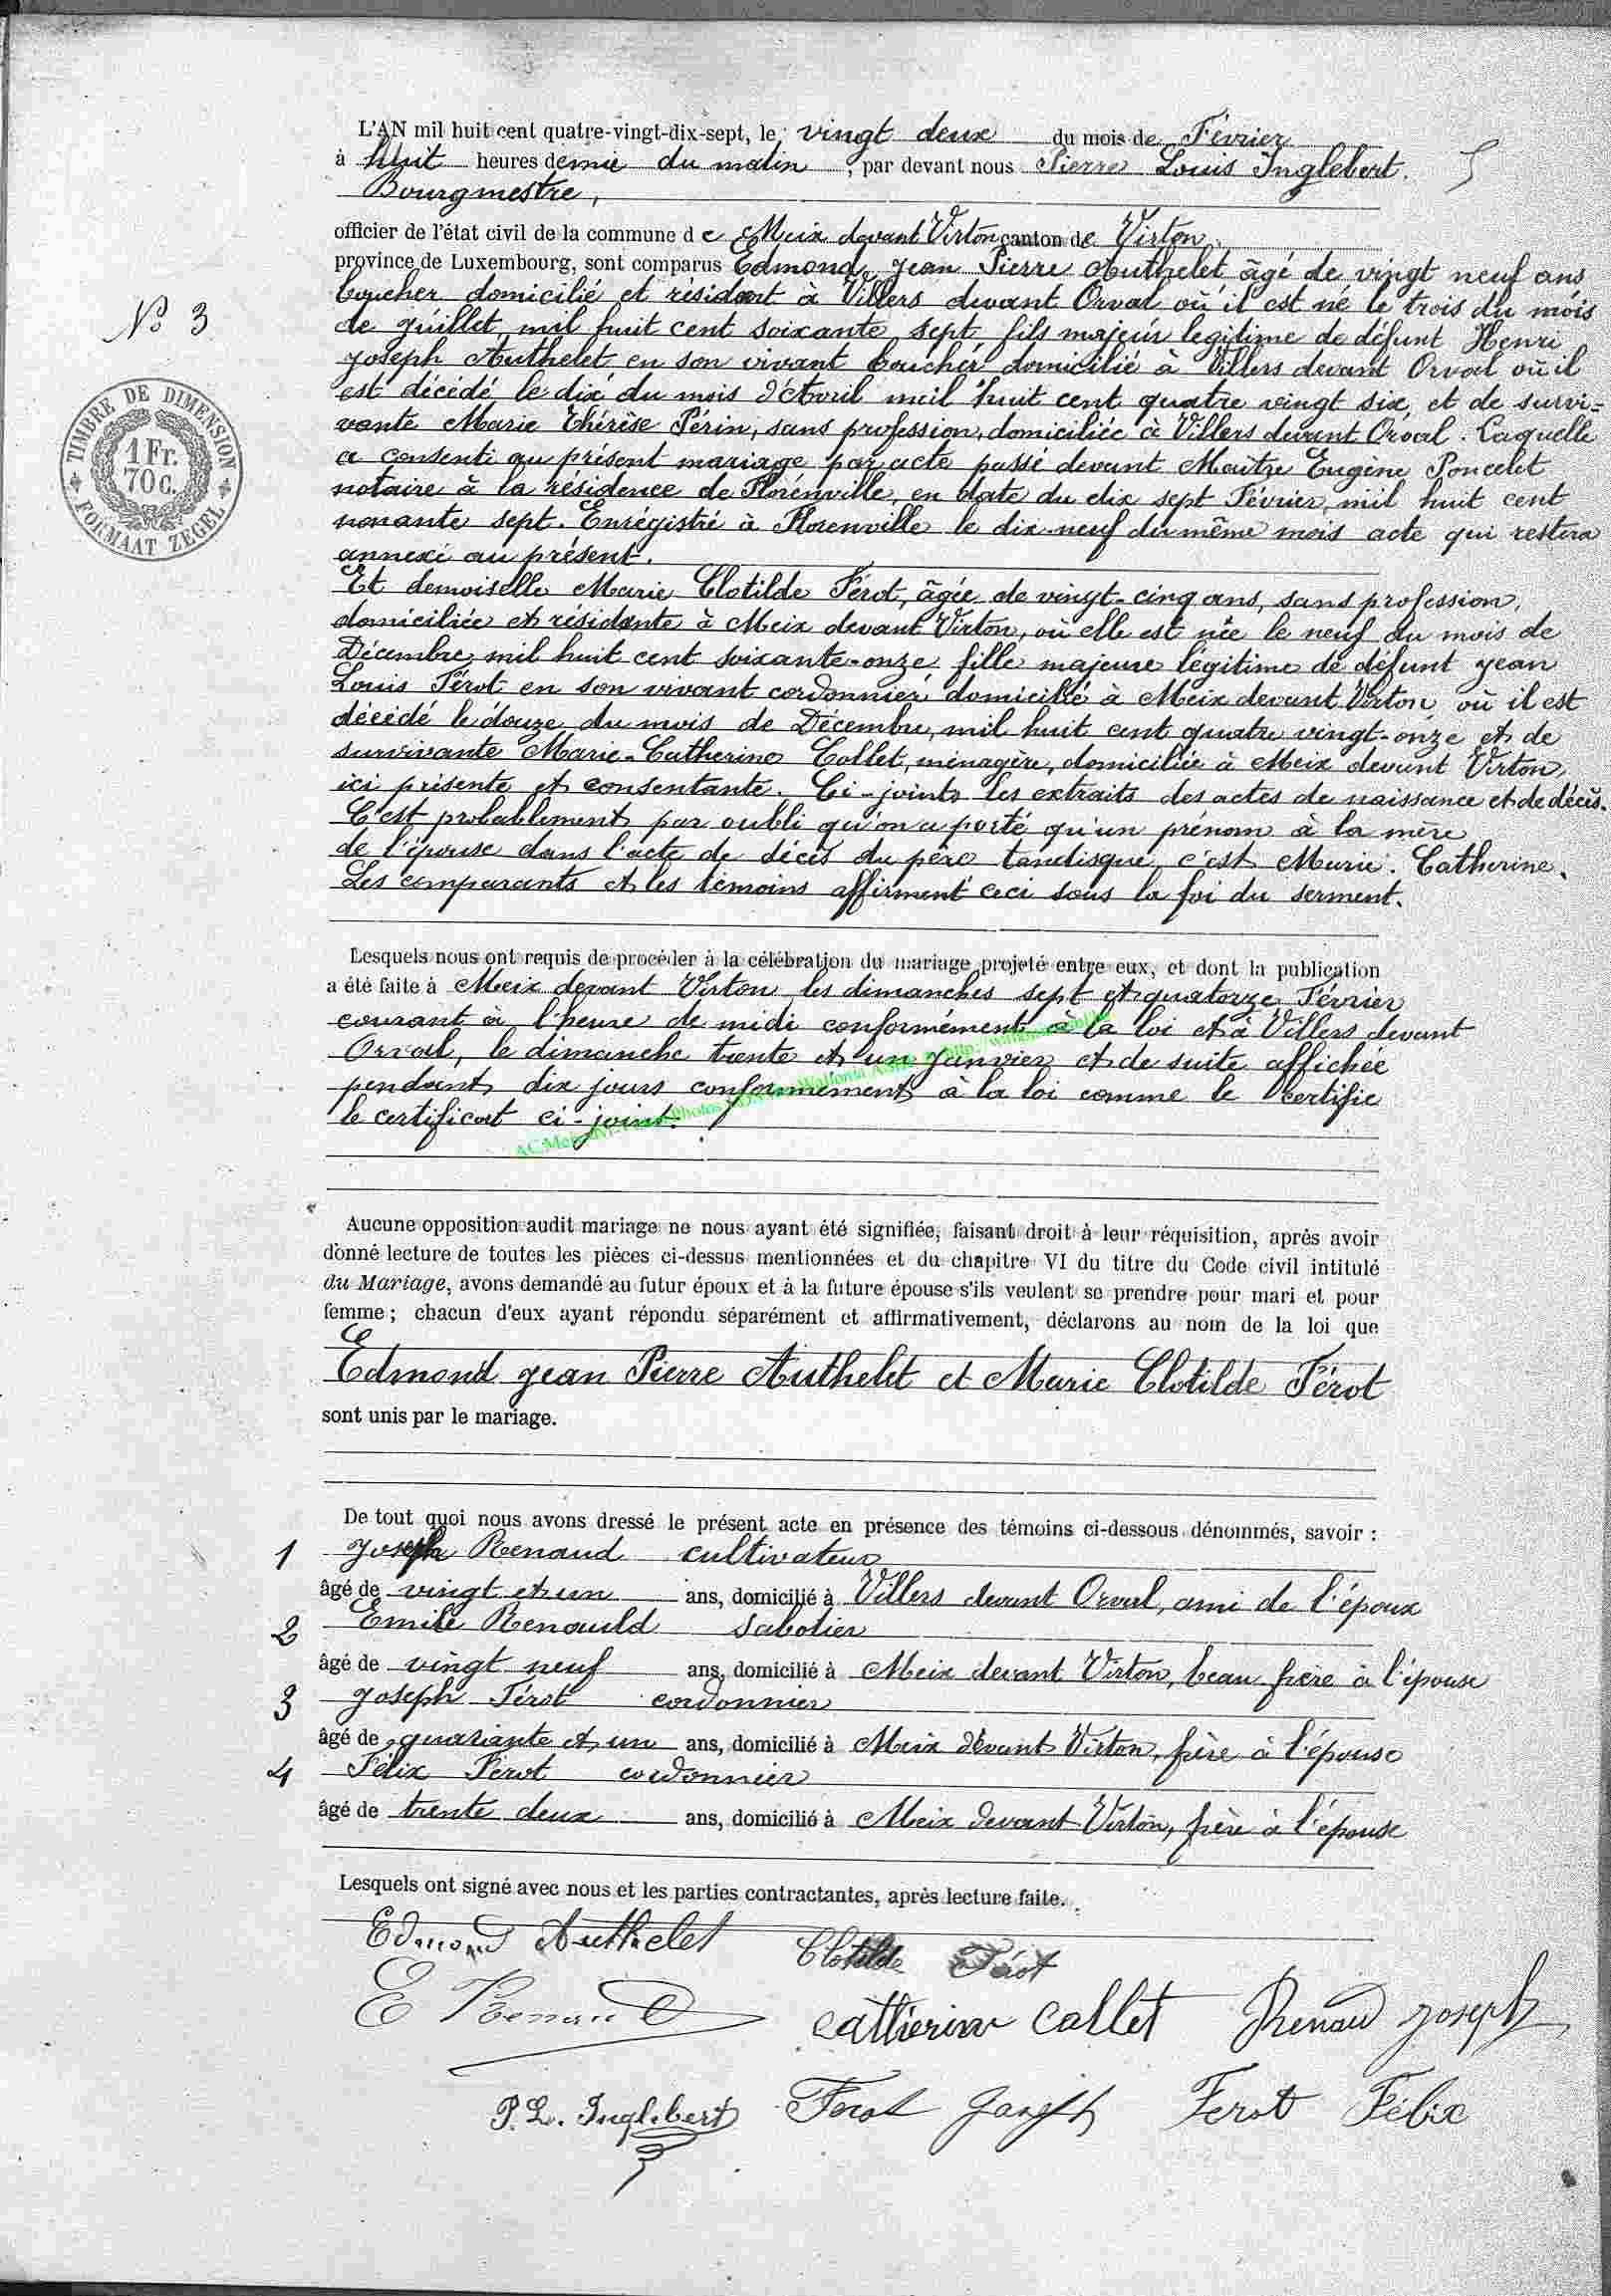 L'AN mil huit cent quatre-vingt-dix-sept, le vingt deux du mois de Février
à huit heures demie du matin, par devant nous Pierre Louis Inglebert.
Bourgmestre,
officier de l'état civil de la commune de Meix devant Virton canton de Virton
province de Luxembourg, sont comparus Edmond, Jean Pierre Authelet âgé de vingt neuf ans
boucher domicilié et résidant à Villers devant Orval où il est né le trois du mois
N° 3
de Juillet mil huit cent soixante sept fils majeur légitime de défunt Henri
Joseph Authelet en son vivant boucher domicilié à Villers devant Orval où il
est décédé le dix du mois d'Avril mil huit cent quatre vingt six, et de survi=
vante Marie Thérèse Périn, sans profession, domiciliée à Villers devant Orval. Laquelle
a consenti au présent mariage par acte passé devant Maître Eugène Poncelet
notaire à la résidence de Florenville, en date du dix sept Février, mil huit cent
nonante sept. Enrégistré à Florenville le dix-neuf du même mois acte qui restera
annexé au présent.
TIMBRE DE DIMENSION
1 Fr.
70 C.
FORMAAT ZEGEL
Et demoiselle Marie Clotilde Férot, âgée de vingt-cinq ans, sans profession,
domiciliée et résidante à Meix devant Virton, où elle est née le neuf du mois de
Décembre mil huit cent soixante-onze fille majeure légitime de défunt Jean
Louis Férot en son vivant cordonnier domicilié à Meix devant Virton où il est
décédé le douze du mois de Décembre, mil huit cent quatre vingt-onze et de
survivante Marie-Catherine Collet, ménagère, domiciliée à Meix devant Virton,
ici présente et consentante. Ci-joints les extraits des actes de naissance et de décès.
C'est probablement par oubli qu'on a porté qu'un prénom à la mère
de l'épouse dans l'acte de décès du père tandisque c'est Marie-Catherine.
Les comparants et les témoins affirment ceci sous la foi du serment.
Lesquels nous ont requis de procéder à la célébration du mariage projeté entre eux, et dont la publication
a été faite à Meix devant Virton les dimanches sept et quatorze Février
courant à l'heure de midi conformément à la loi et à Villers devant
Orval, le dimanche trente et un Janvier et de suite affichée
pendant dix jours conformément à la loi comme le certifie
le certificat ci-joint.
Aucune opposition audit mariage ne nous ayant été signifiée, faisant droit à leur réquisition, après avoir
donné lecture de toutes les pièces ci-dessus mentionnées et du chapitre VI du titre du Code civil intitulé
du Mariage, avons demandé au futur époux et à la future épouse s'ils veulent se prendre pour mari et pour
femme; chacun d'eux ayant répondu séparément et affirmativement, déclarons au nom de la loi que
Edmond Jean Pierre Authelet et Marie Clotilde Férot
sont unis par le mariage.
De tout quoi nous avons dressé le présent acte en présence des témoins ci-dessous dénommés, savoir :
1 Joseph Renaud cultivateur
âgé de vingt et un ans, domicilié à Villers devant Orval, ami de l'époux
2 Emile Renauld sabotier
âgé de vingt neuf ans, domicilié à Meix devant Virton, beau frère à l'épouse
3 Joseph Férot cordonnier
âgé de quarante et un ans, domicilié à Meix devant Virton, frère à l'épouse
4 Félix Férot cordonnier
âgé de trente deux ans, domicilié à Meix devant Virton, frère à l'épouse
Lesquels ont signé avec nous et les parties contractantes, après lecture faite.
Edmond Authelet Clotilde Férot
E Renaud Catherine Collet Renaud Joseph
P. L. Inglebert Ferot Joseph Ferot Félix